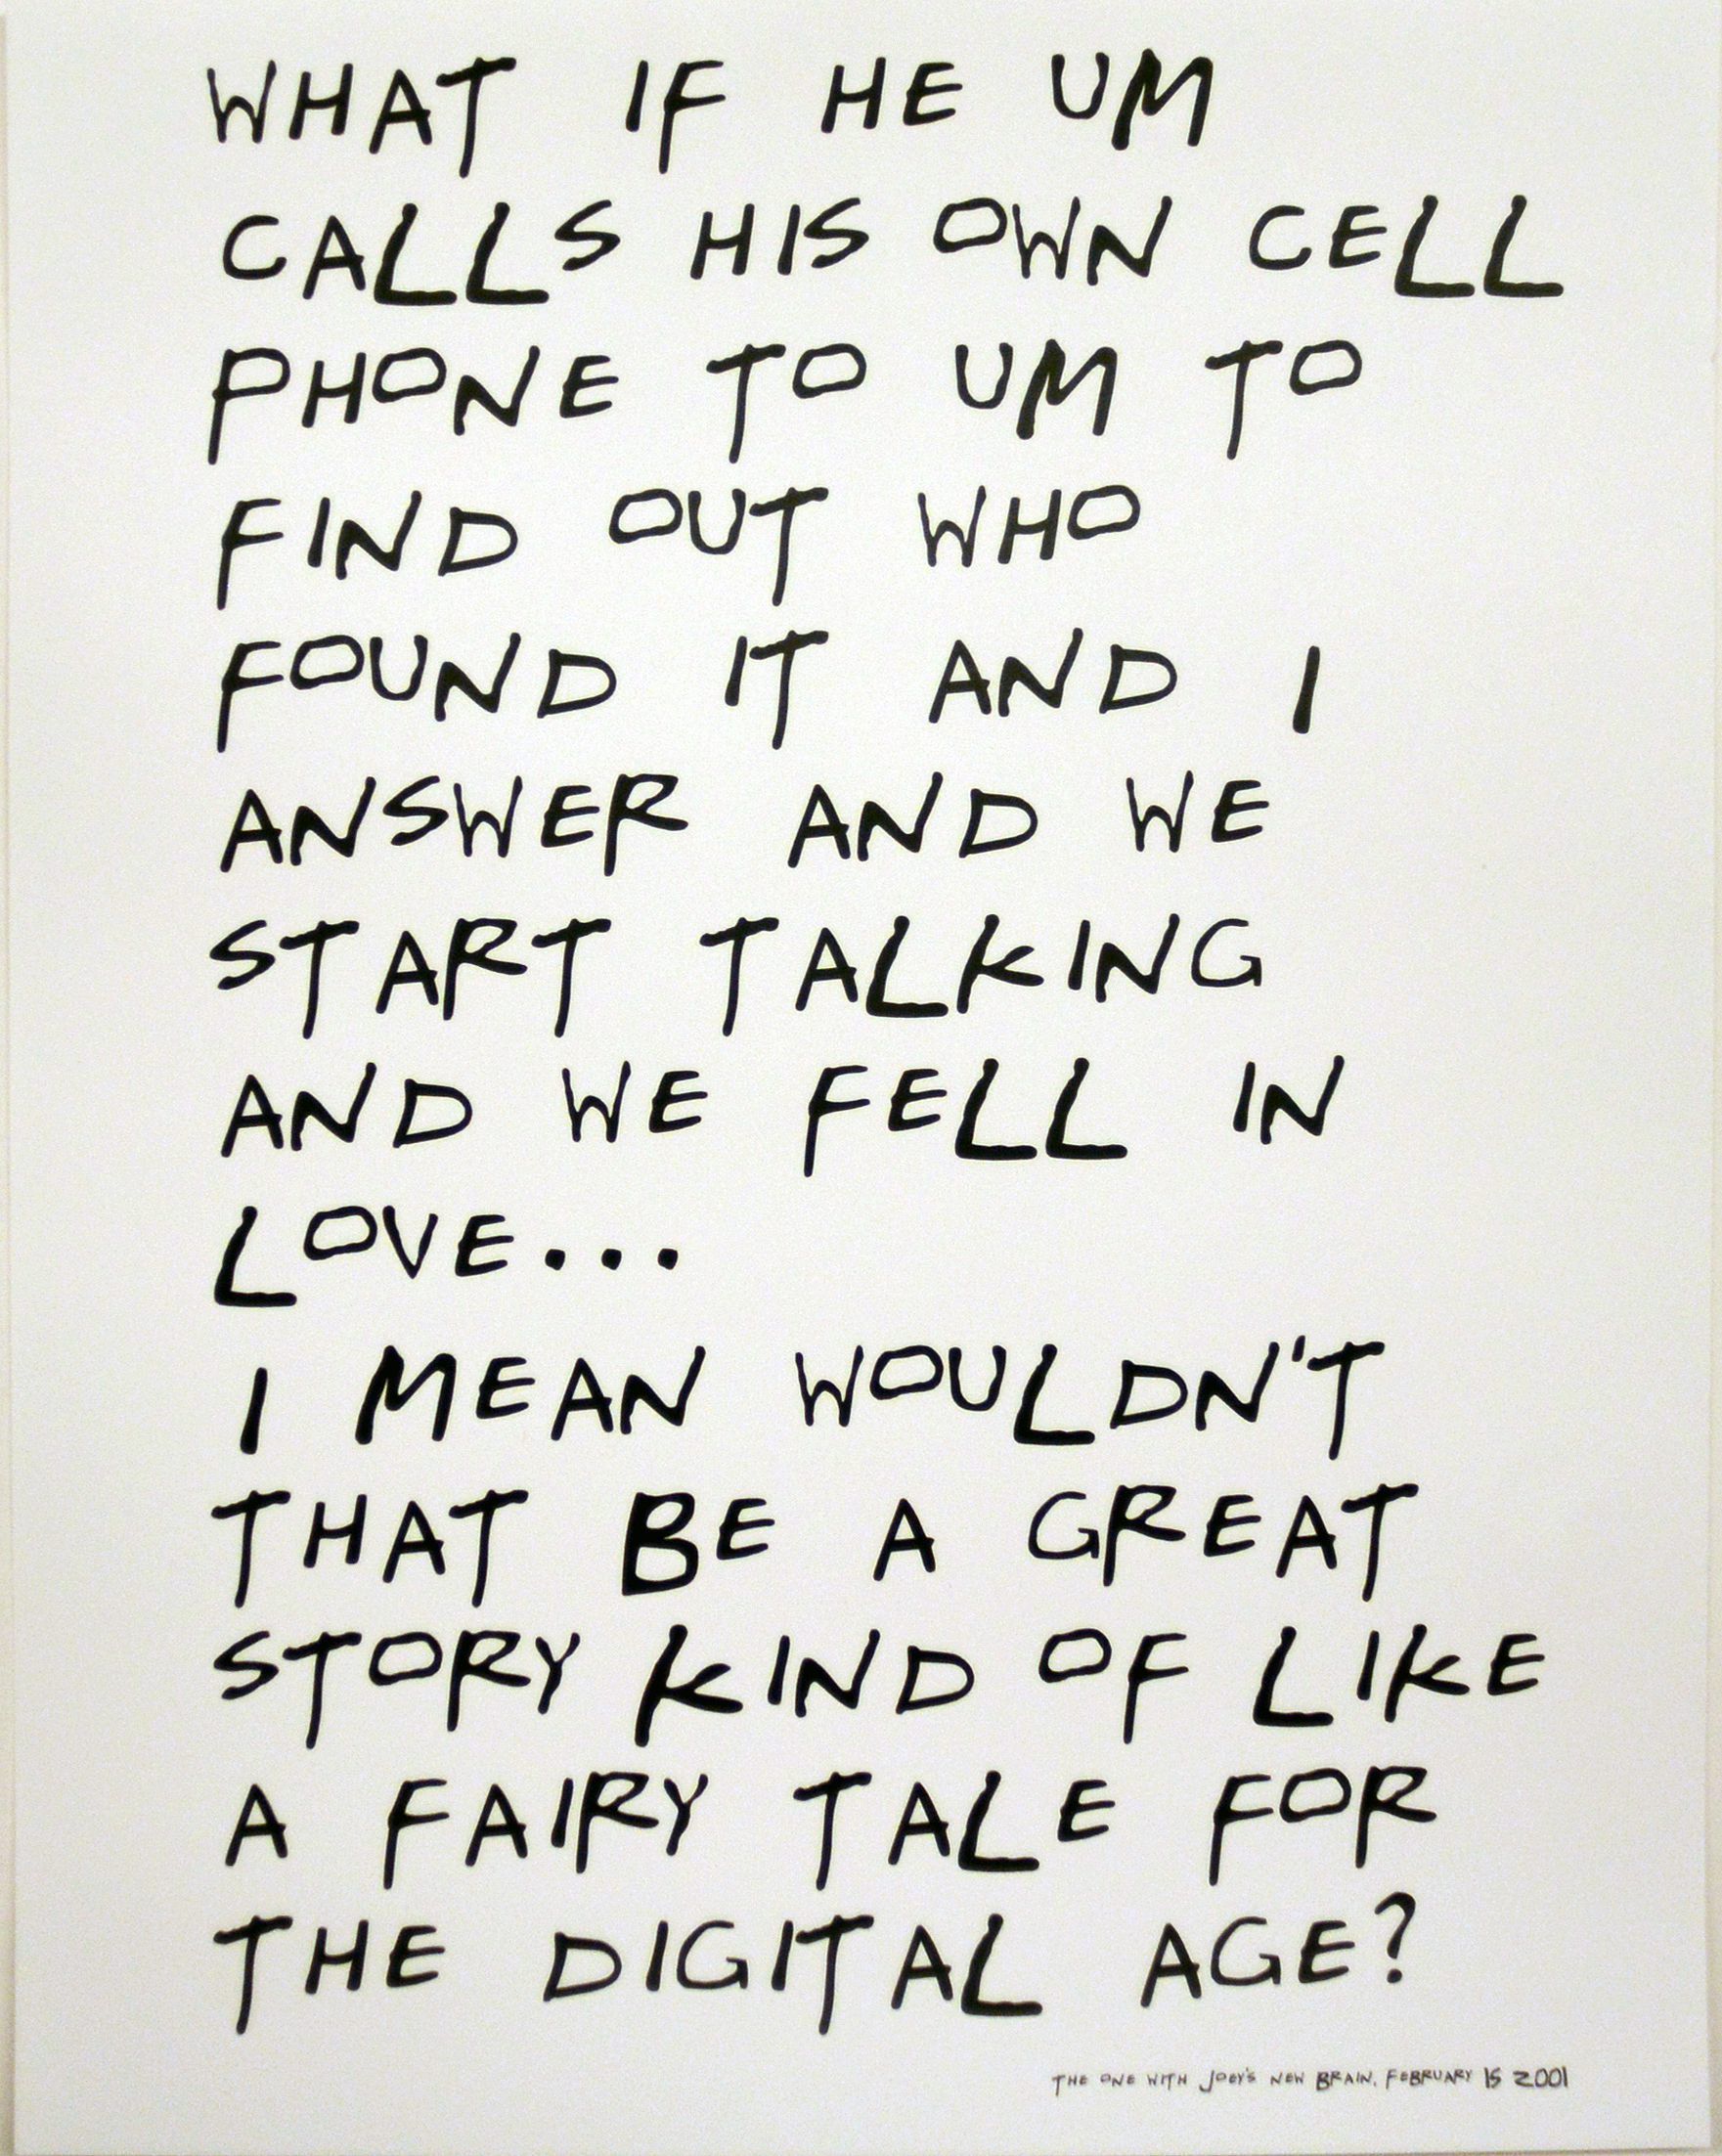 WHAT IF HE UM
CALLS HIS OWN CELL
PHONE TO UM TO
FIND OUT WHO
FOUND IT AND I
ANSWER AND WE
START TALKING
AND WE FELL IN
LOVE...
I MEAN WOULDN'T
THAT BE A GREAT
STORY KIND OF LIKE
A FAIRY TALE FOR
THE DIGITAL AGE?
THE ONE WITH JOEY'S NEW BRAIN, FEBRUARY 15 2001